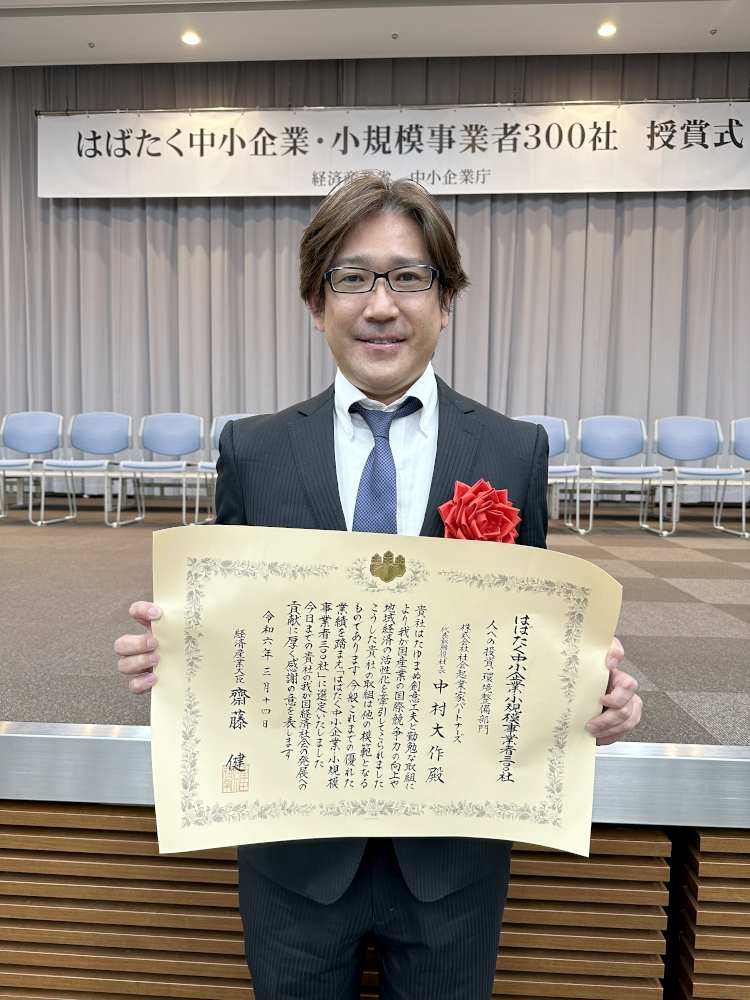 はばたく中小企業・小規模事業者300社 授賞式
経済産業省 中小企業庁
はばたく中小企業・小規模事業者三〇〇社
人への投資・環境整備部門
株式会社社会起業家パートナーズ
代表取締役社長 中村大作 殿
貴社はたゆまぬ創意工夫と勤勉な取組に
より我が国産業の国際競争力の向上や
地域経済の活性化を牽引してこられました
こうした貴社の取組は他の模範となる
ものであります今般これまでの優れた
業績を踏まえ「はばたく中小企業・小規模
事業者三〇〇社」に選定いたしました
今日までの貴社の我が国経済社会の発展への
貢献に厚く感謝の意を表します
令和六年三月十四日
経済産業大臣 齋藤 健